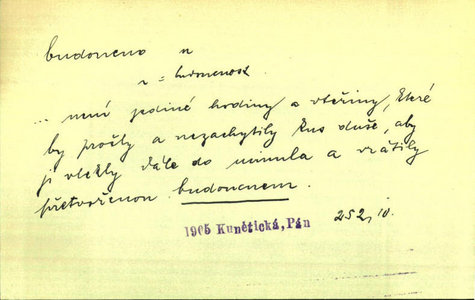 budoucno n
n = budoucnost
... není jediné hodiny a vteřiny, které
by prošly a nezachytily kus duše, aby
ji vlekly dále do minula a vrátily
přetvořenou budoucnem.
1905 Kunětická, Pán
252, 10.